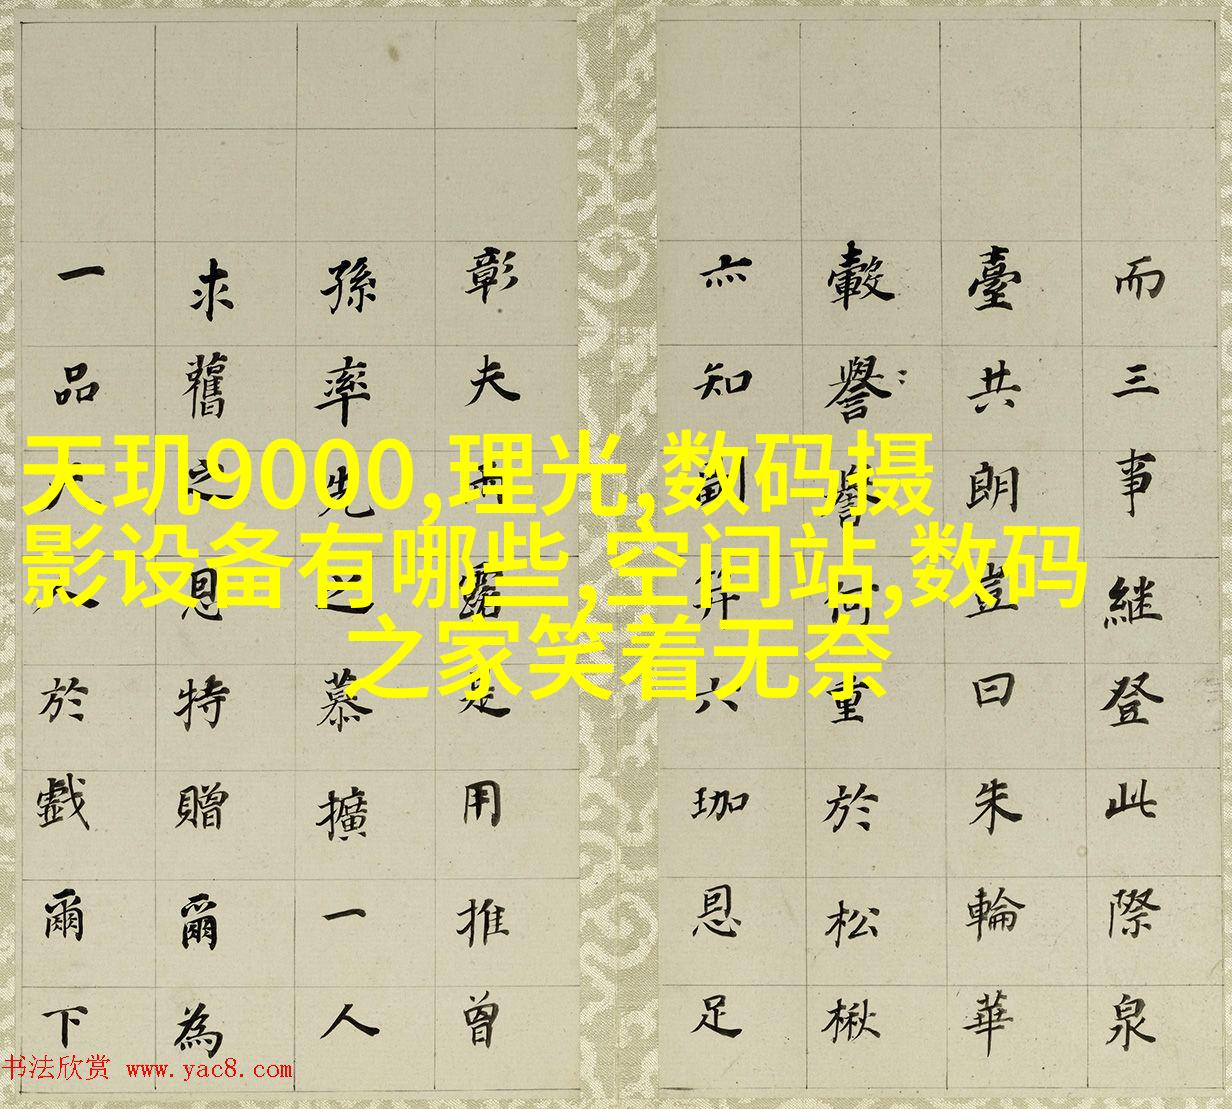 天玑9000,理光,数码摄
影设备有哪些,空间站,数码
之家笑着无奈
而三事継登此際泉
臺共朗豈曰朱輪華
轂譽何重於松楸
亦知副笄六珈恩足
彰夫雨露是用推曾
孫率先之慕擴一人
求舊恩特贈爾為
一品夫人於戲爾下
书法欣赏 www.yac8.com